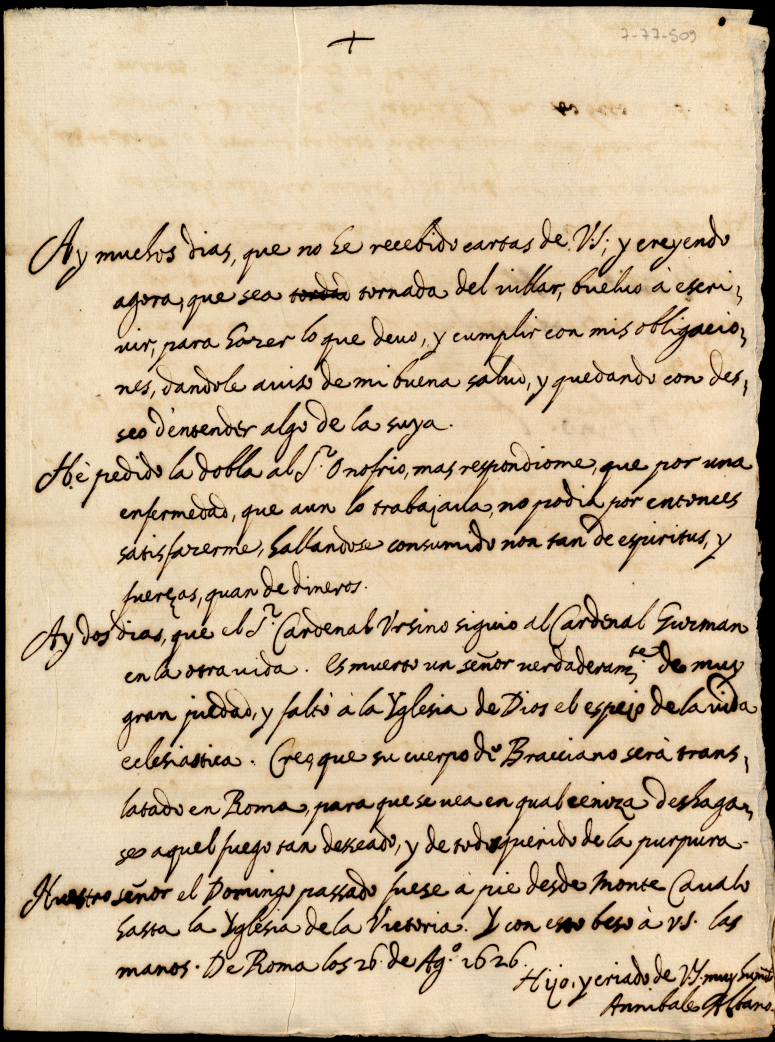 +
7-77-509
Ay muchos dias, que no he recebido cartas de V.S; y creyendo
agora, que sea tornada del villar, buelvo à escri,
vir, para hazer lo que devo, y cumplir con mis obligacio,
nes, dandole aviso de mi buena salud, y quedando con des,
seo d'entender algo de la suya.
Hè pedido la dobla al S.r Onofrio, mas respondiome, que por una
enfermedad, que aun lo trabajava, no podia por entonces
satisfazerme, hallandose consumido non tan de espiritus, y
fuerças, quan de dineros.
Ay dos dias, que el S.r Cardenal Ursino siguio al Cardenal Guzman
en la otra vida. Es muerto un señor verdaderam.te de muy
gran piedad, y faltò à la Yglesia de Dios el espejo de la vida
eclesiastica. Creo, que su cuerpo de Bracciano serà trans,
latado en Roma, para que se vea en qual ceniza deshaga,
se aquel fuego tan desseado, y de todos querido de la purpura.
Nuestro señor el Domingo passado fuese à pie desde Monte Cavalo
hasta la Yglesia de la Victoria. Y con esto beso à V.S. las
manos. De Roma los 26 de Ag.o 1626.
Hijo, y criado de V.S. muy humil
Annibale Albano.